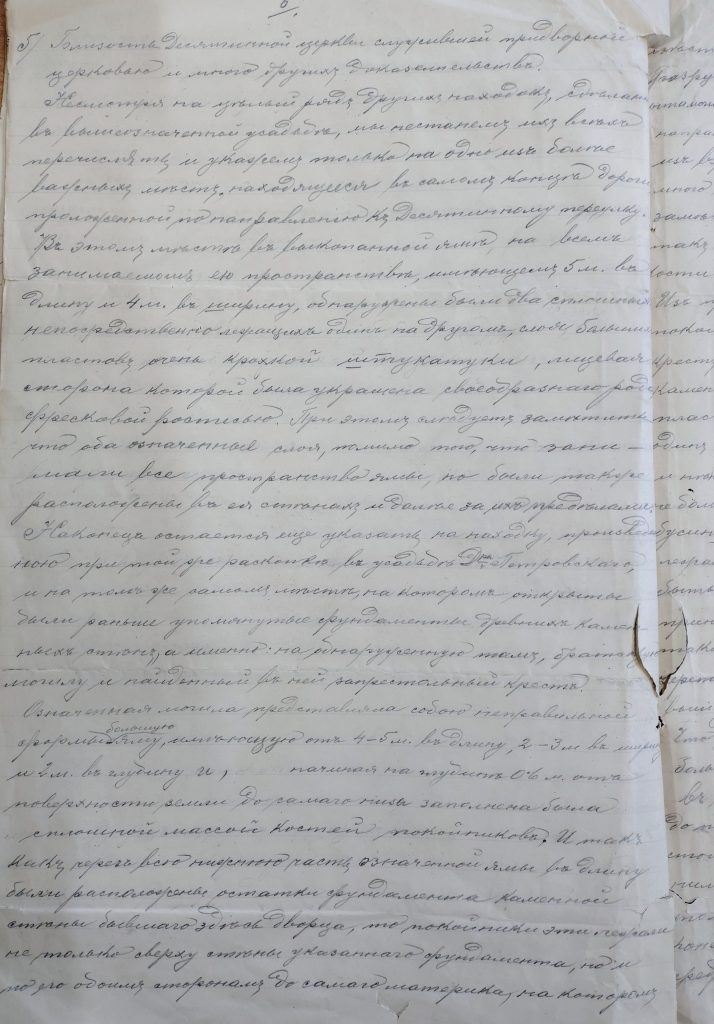 6.
5) Близость Десятинной церкви служившей придворной
церковью и много других доказательствъ.
Несмотря на цѣлый рядъ другихъ находокъ, сдѣлан
въ вышеозначенной усадьбѣ, мы нестанемъ ихъ всѣхъ
перечислять и укажемъ только на одно изъ болѣе
важныхъ мѣстъ, находящееся въ самомъ концѣ дороги
проложенной, по направленію къ Десятинному переулку.
Въ этомъ мѣстѣ въ выкопанной ямѣ, на всемъ
занимаемомъ ею пространствѣ, имѣющемъ 5 м. въ
длину и 4 м. въ ширину, обнаружены были два сплошныхъ
непосредственно лежащихъ одинъ на другомъ, слоя большихъ
пластовъ очень крохкой штукатуки, лицевая
сторона которой была украшена своеобразнаго рода
фресковой росписью. При этомъ слѣдуетъ замѣтить
что оба означенные слоя, помимо того, что зани-
мали все пространство ямы, но были также
расположены въ ея стѣнахъ и далѣе за ихъ предѣлами.
Наконецъ остается еще указать на находку, произведен
ною при той же раскопкѣ въ усадьбѣ Д-ра Петровскаго,
и на томъ же самомъ мѣстѣ, на которомъ открыты
были раньше упомянутые фундаменты древнихъ камен-
ныхъ стѣнъ, а именно: на обнаруженную тамъ, братскую
могилу и найденный въ ней запрестольный крестъ.
Означенная могила представляла собою неправильной
формы большую яму, имѣющую отъ 4-5 м. въ длину, 2-3 м въ ширину
и 2 м. въ глубину и, начиная на глубинѣ 0'6 м. отъ
поверхности земли до самаго низа заполнена была
сплошной массой костей, покойниковъ. И такъ
какъ, черезъ всю нижнюю часть, означенной ямы въ длину
были расположены остатки фундамента каменной
стѣны бывшаго здѣсь дворца, то покойники эти лежали
не только сверху стѣны указаннаго фундамента, но и
по его обоимъ сторонамъ до самаго материка, на которомъ